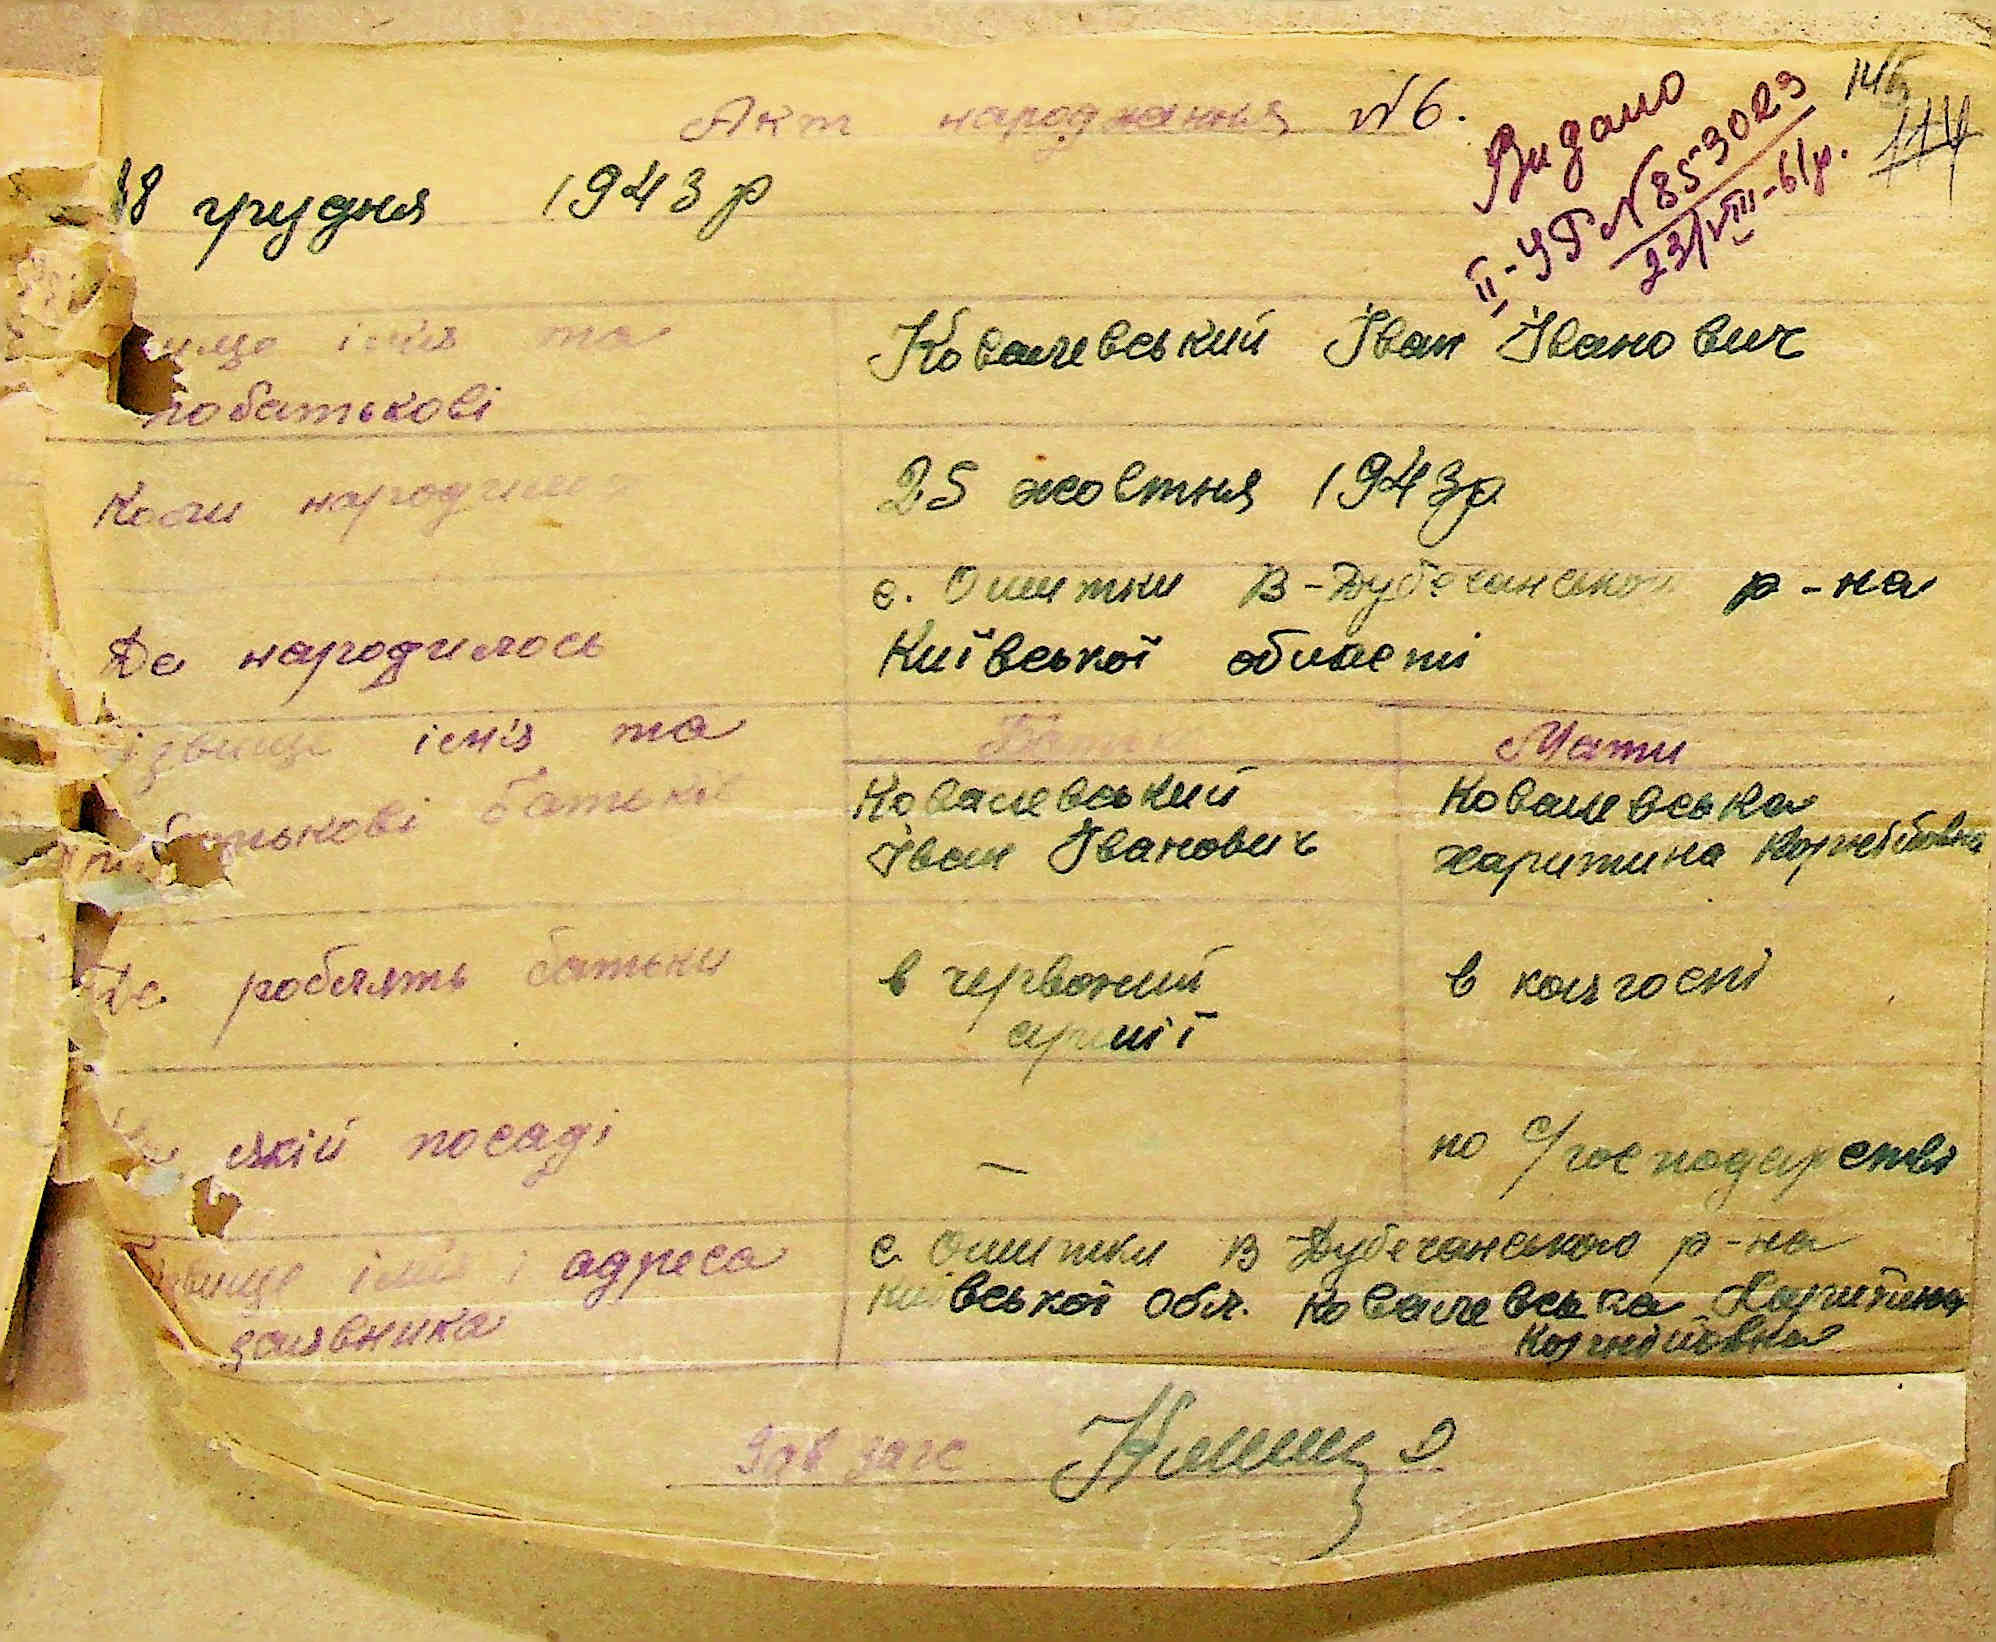 Акт народження №6.
Видано
II-УБ №853023
23/VIII-61р.
114
18 грудня 1943 р
ім'я та
побатькові
Ковалевський Іван Іванович
Коли народився
25 жовтня 1943р
Де народилось
с. Ошитки В-Дубечанського р-на
Київської області
Прізвище ім'я та
батькові батьків
Батько
Мати
Ковалевський
Іван Іванович
Ковалевська
Харитина Корніївна
Де роблять батьки
в червоний
армії
в колгоспі
На якій посаді
—
по с/господарстві
ім'я і адреса
заявника
с. Ошитки В Дубечанського р-на
Київської обл. Ковалевська Харитина
Корніївна
Зав загс